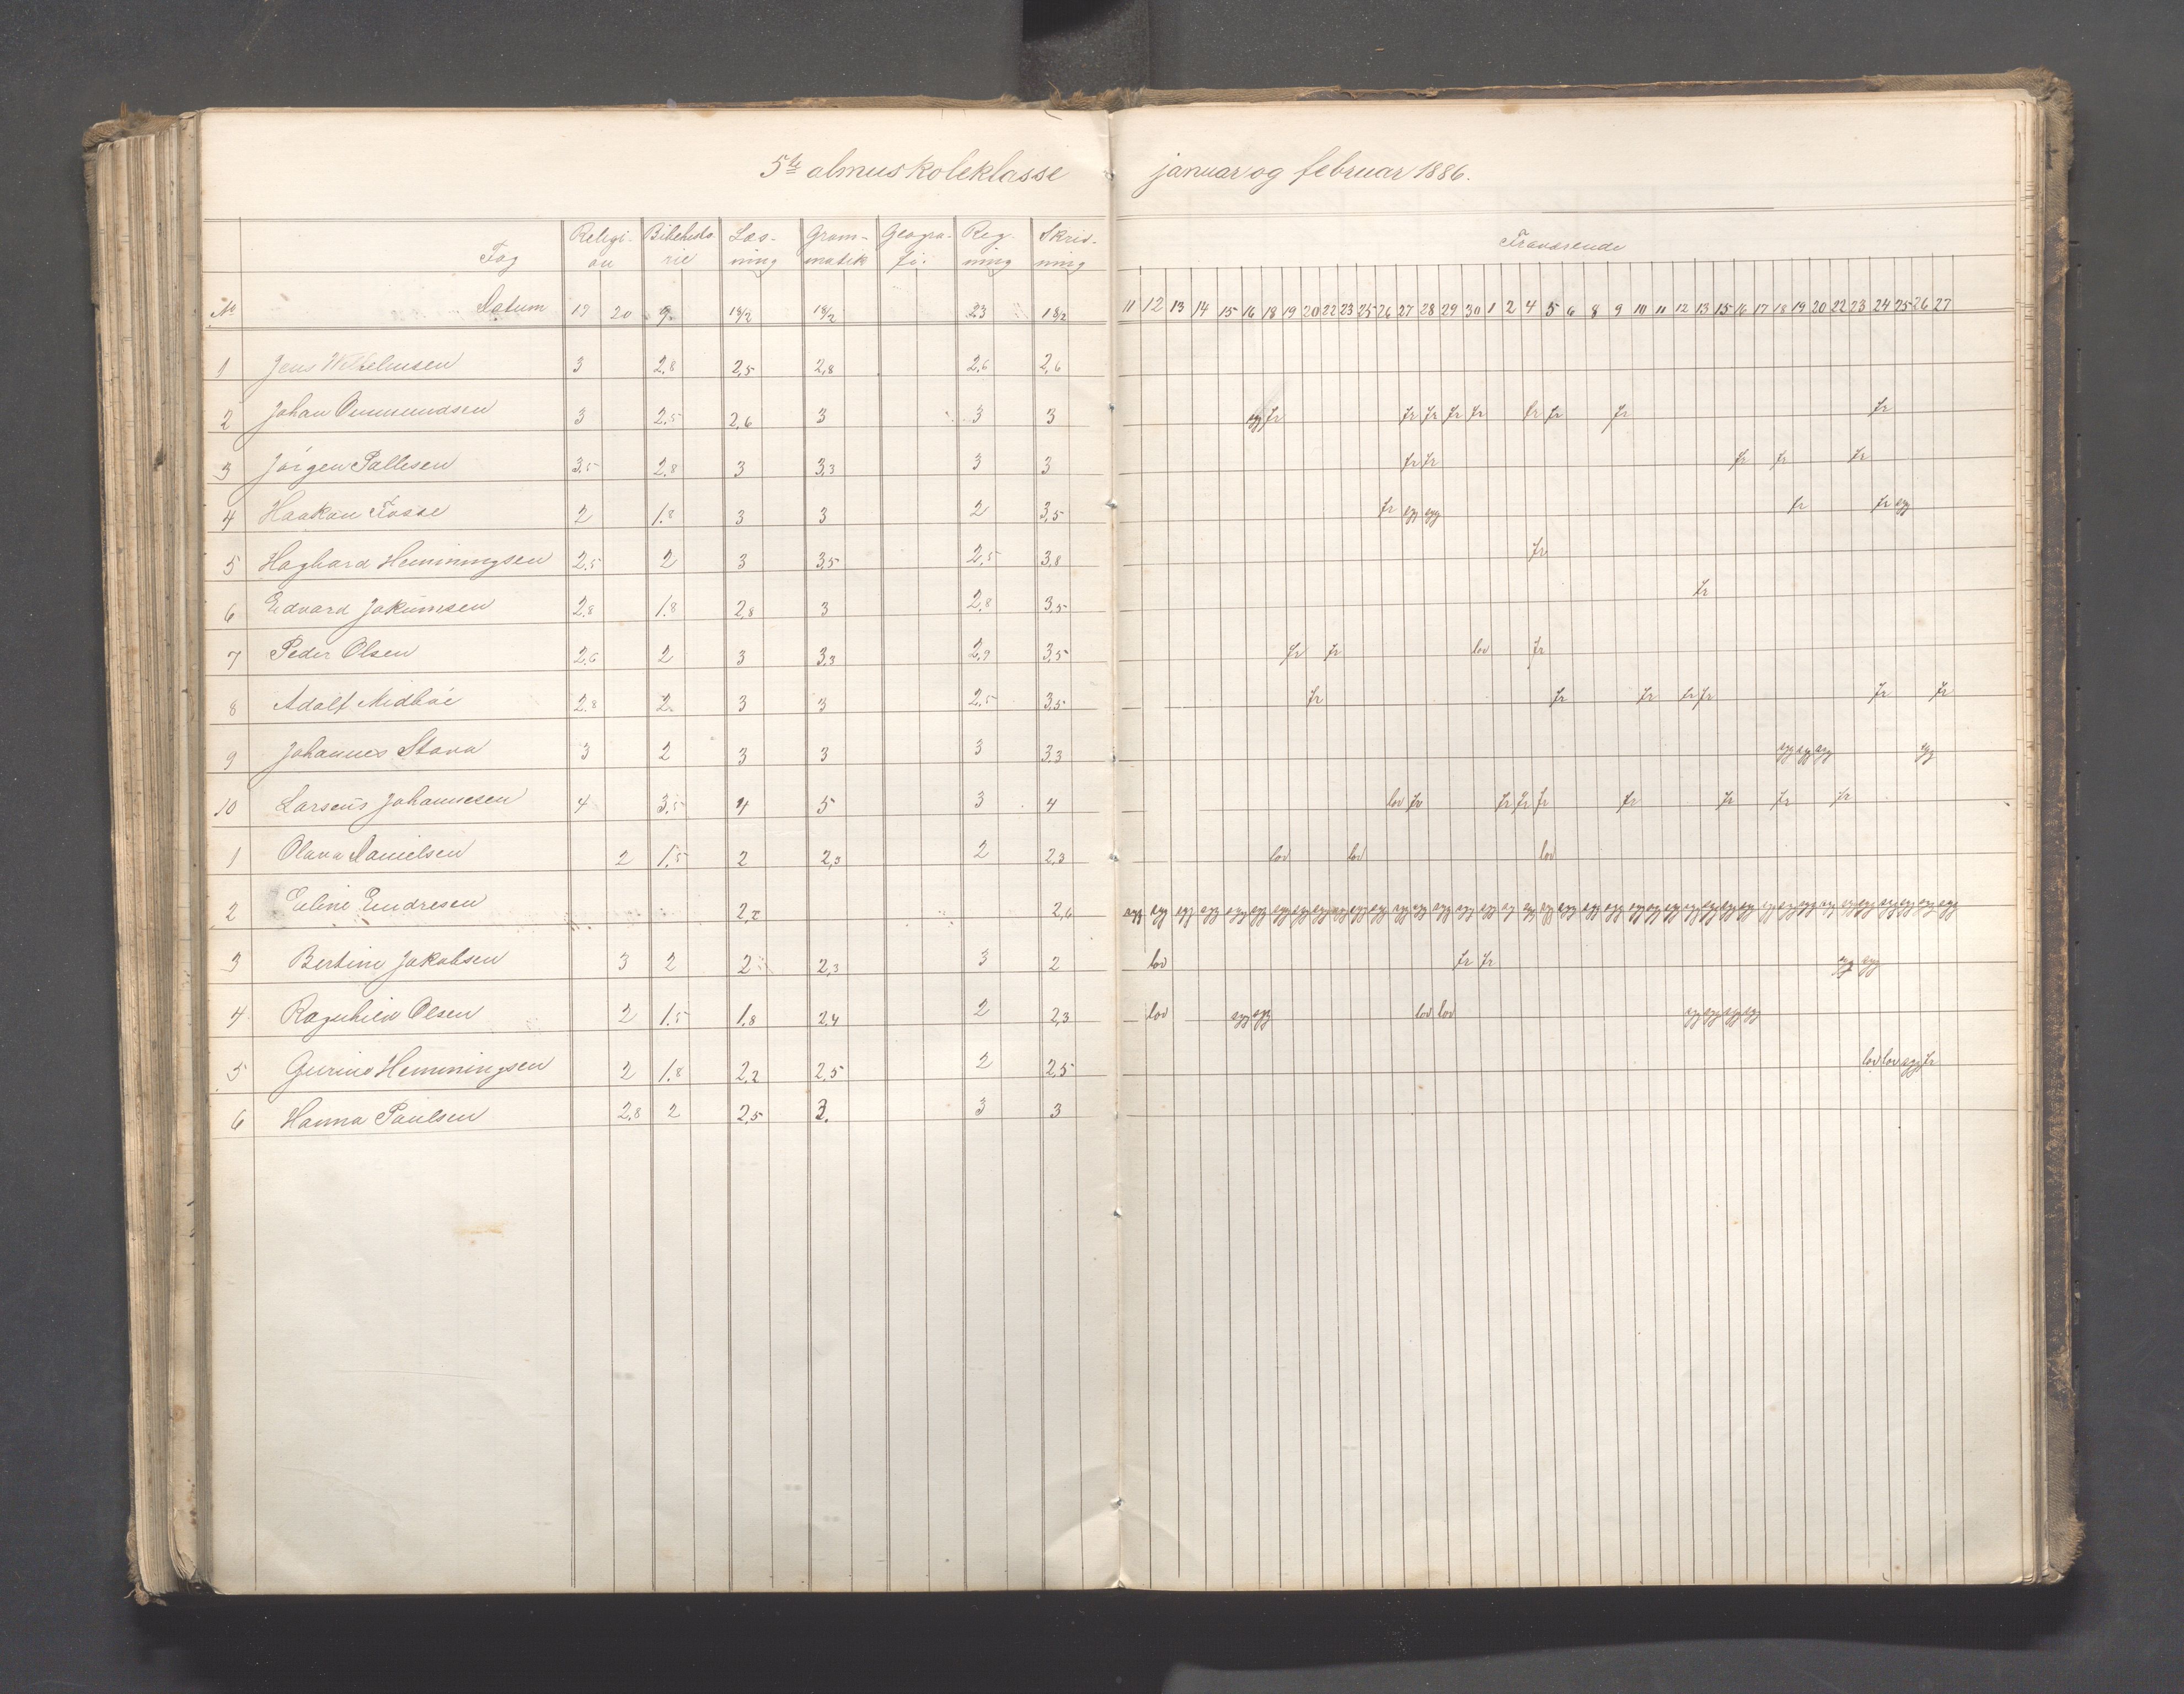 5te almuskoleklasse januar og februar 1886.
Fag Religion Bibelhistorie Læsning Grammatik Geografi. Regning Skrivning Fraværende
No Datum 19 20 9 18/2 18/2 23 18/2 11 12 13 14 15 16 18 19 20 22 23 25 26 27 28 29 30 1 2 4 5 6 8 9 10 11 12 13 15 16 17 18 19 20 22 23 24 25 26 27
1 Jens Wilhelmsen 3 2,8 2,5 2,8 2,6 2,6
2 Johan Ommundsen 3 2,5 2,6 3 3 3 syg fr fr fr fr fr fr fr fr fr
3 Jörgen Pallesen 3,5 2,8 3 3,3 3 3 fr fr fr fr fr
4 Haakon Fosse 2 1,8 3 3 2 3,5 fr syg syg fr fr syg
5 Hagbard Hemmingsen 2,5 2 3 3,5 2,5 3,8 fr
6 Edvard Jokumsen 2,8 1,8 2,8 3 2,8 3,5 fr
7 Peder Olsen 2,6 2 3 3,3 2,9 3,5 fr fr lov fr
8 Adolf Midböe 2,8 2 3 3 2,5 3,5 fr fr fr fr fr fr fr
9 Johannes Stava 3 2 3 3 3 3,3 syg syg syg syg
10 Larseus Johannesen 4 3,5 4 5 3 4 lov fr fr fr fr fr fr fr fr
1 Olava Danielsen 2 1,5 2 2,3 2 2,3 lov lov lov
2 Eline Endresen 2,2 2,6 syg syg syg syg syg syg syg syg syg syg syg syg syg syg syg syg syg syg syg syg syg syg syg syg syg syg syg syg syg syg syg syg syg syg syg syg syg syg syg syg
3 Bertine Jakobsen 3 2 2 2,3 3 2 lov fr fr syg syg
4 Ragnhild Olsen 2 1,5 1,8 2,4 2 2,3 lov syg syg lov lov syg syg syg syg
5 Gurine Hemmingsen 2 1,8 2,2 2,5 2 2,5 lov lov syg fr
6 Hanna Paulsen 2,8 2 2,5 3. 3 3